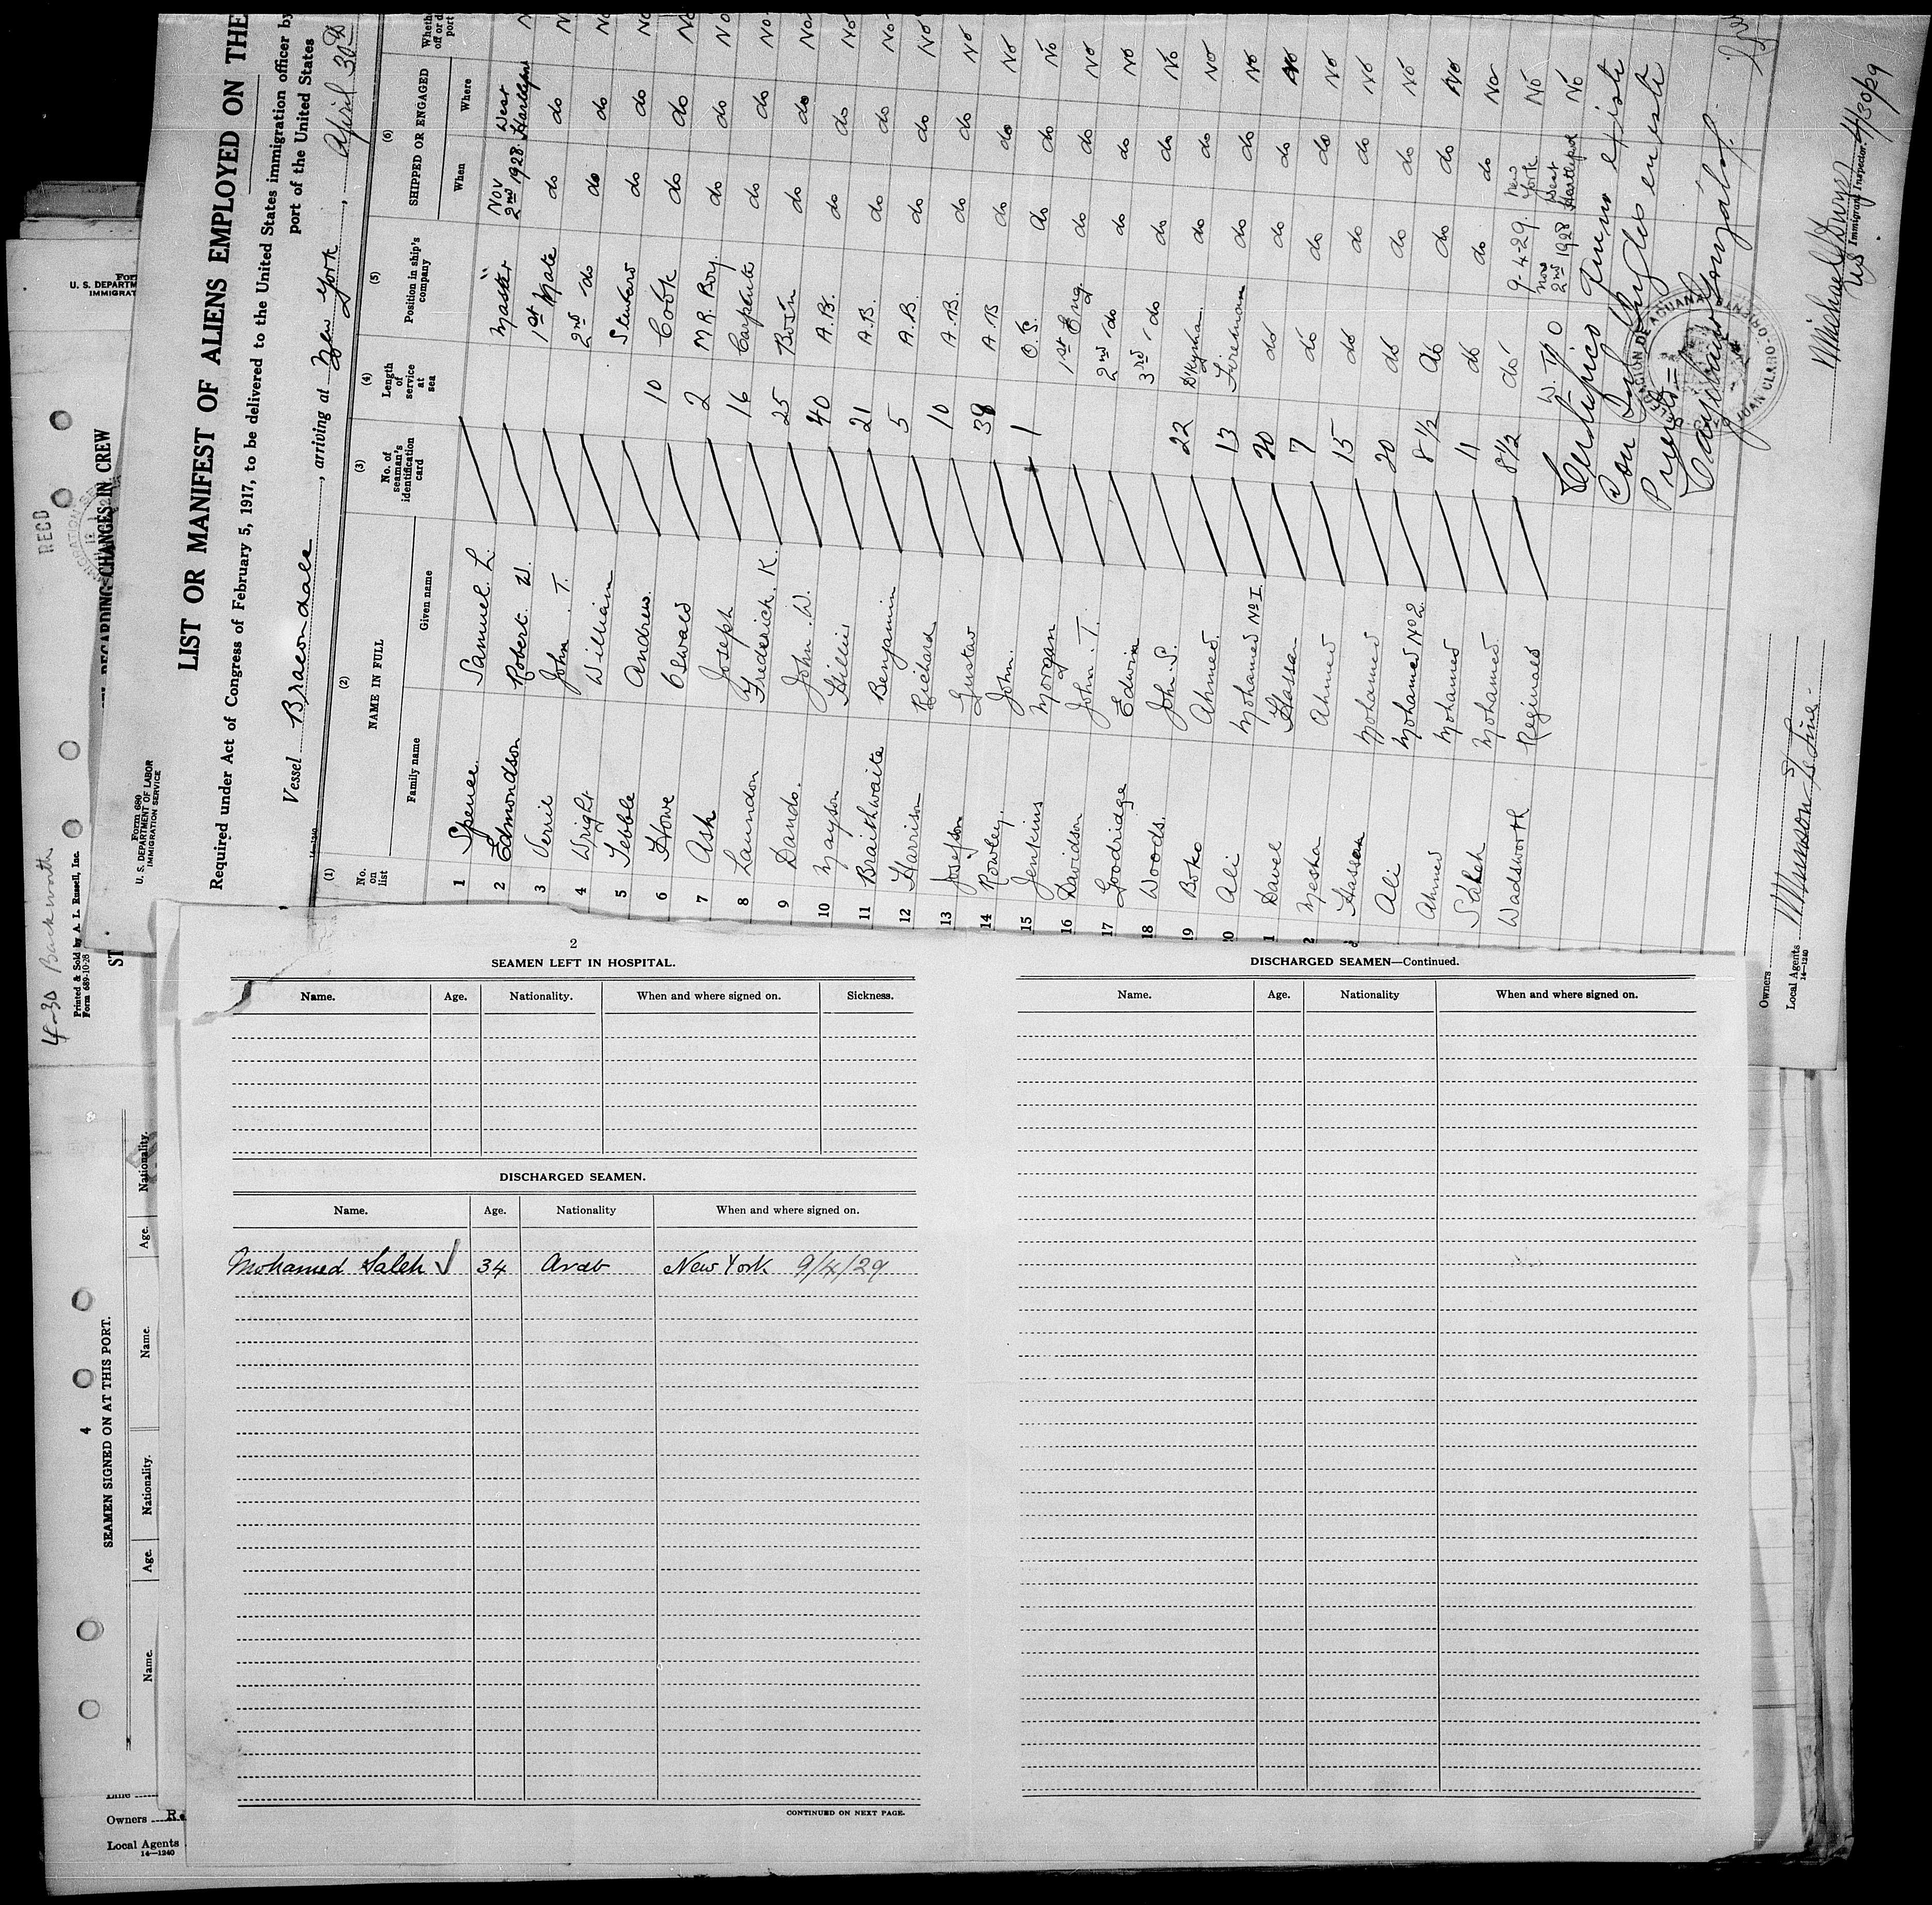 LIST OR MANIFEST OF ALIENS EMPLOYED ON THE
Required under Act of Congress of February 5, 1917, to be delivered to the United States immigration officer by
port of the United States
Form 680
U. S. DEPARTMENT OF LABOR
IMMIGRATION SERVICE
Vessel Bracondale, arriving at New York, April 30th
14-1240
(1) (2) (3) (4) (5) (6)
No. on list
NAME IN FULL
Family name Given name
No. of seaman's identification card
Length of service at sea
Position in ship's company
SHIPPED OR ENGAGED
When Where
1 Spence Samuel L. Master Nov 2nd 1928 West Hartlepool
2 Edmondson Robert W. 1st Mate do do No
3 Verril John T. 2nd do do do No
4 Wright William Steward do do No
5 Tebble Andrew 10 Cook do do No
6 Howe Oswald 2 M.R. Boy do do No
7 Ash Joseph 16 Carpenter do do No
8 Laundon Frederick K. 25 Bosn do do No
9 Dando. John W. 40 A.B. do do No
10 Mayson 21 A.B. do do No
11 Braithwaite Benjamin 5 A.B. do do No
12 Harrison Richard 10 A.B. do do No
13 Josefson Gustav 39 A.B do do No
14 Rowley. John. 1 O.S. do do No
15 Jenkins Morgan 1st Eng do do No
16 Davidson John T. 2nd do do do No
17 Goodridge Edwin 3rd do do do No
18 Woods. John S. 22 Dkyman do do No
19 Boko Ahmed. 13 Fireman do do No
Ali Mohamed No 1 20 do do do No
Davel Hassan 7 do do do No
Ahmed 15 do do do No
Hassan Mohamed 20 do do do No
Ali Mohamed No 2. 8 1/2 do do do No
Ahmed Mohamed 11 do do do No
Saleh Mohamed. 8 1/2 do 9-4-29. New York No
Wadsworth Reginald W. T. O Nov 2nd 1928 West Hartlepool No
JUAN CLARO-ORIENTE
Immigrant Inspector.
4/30/29
Owners
Local Agents Munson S/S Line
14-1240
2
SEAMEN LEFT IN HOSPITAL.
Name. Age. Nationality. When and where signed on. Sickness.
DISCHARGED SEAMEN.
Name. Age. Nationality When and where signed on.
Mohamed Saleh √ 34 Arab New York 9/4/29
CONTINUED ON NEXT PAGE.
DISCHARGED SEAMEN—Continued.
Name. Age. Nationality When and where signed on.
U. S. DEPARTM
IMMIGRAT
RECD
REGARDING CHANGES IN CREW
4-30 Backworth
Printed & Sold by A. L. Russell, Inc.
Form 689-10-28
4
SEAMEN SIGNED ON AT THIS PORT.
Name. Age. Nationality. Name. Age. Nationality.
Owners
Local Agents
14—1240